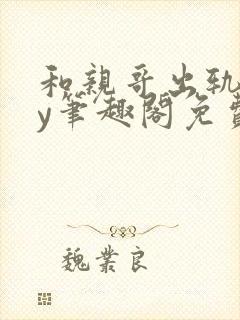 和親哥出轨
y筆趣閣免費
魏業良